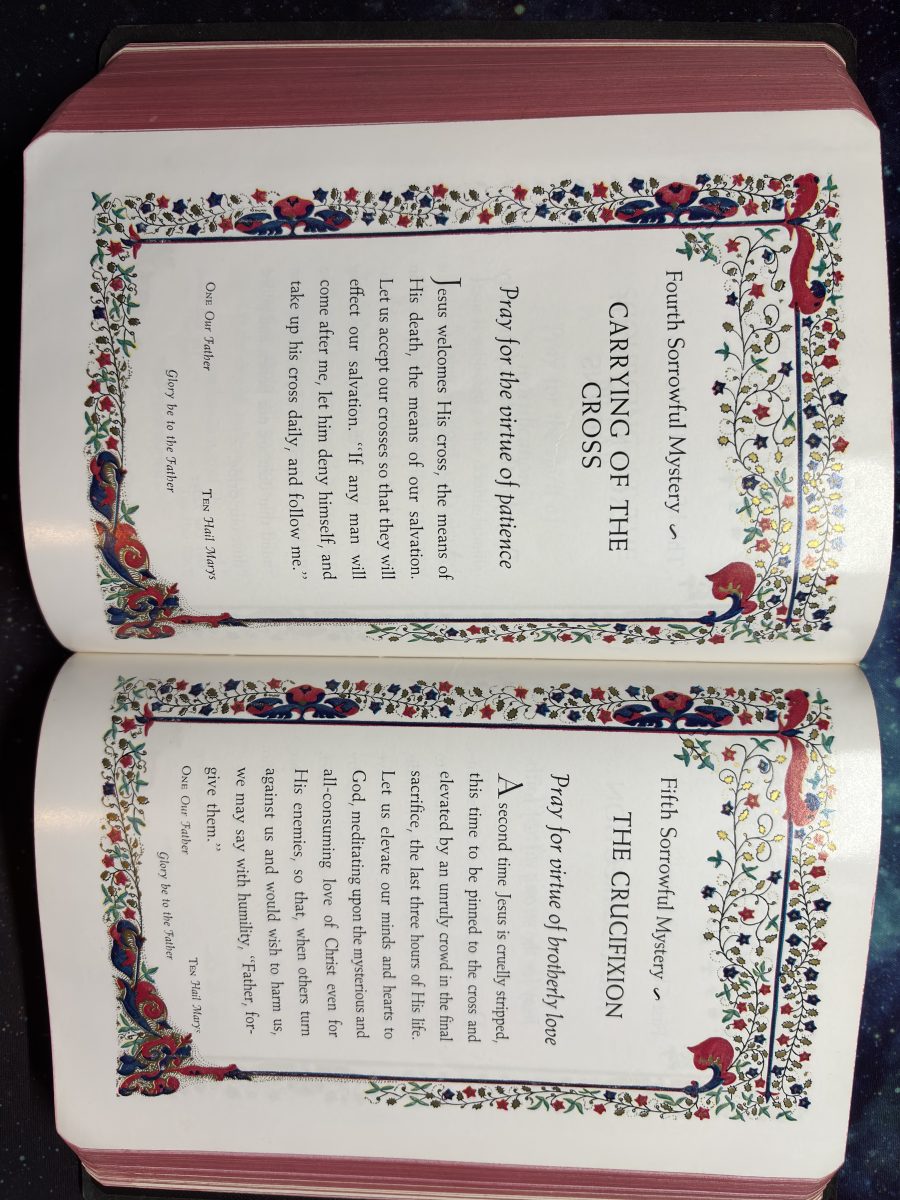 Fourth Sorrowful Mystery ~
CARRYING OF THE
CROSS
Pray for the virtue of patience
Jesus welcomes His cross, the means of
His death, the means of our salvation.
Let us accept our crosses so that they will
effect our salvation. “If any man will
come after me, let him deny himself, and
take up his cross daily, and follow me.”
ONE Our Father TEN Hail Marys
Glory be to the Father
Fifth Sorrowful Mystery ~
THE CRUCIFIXION
Pray for virtue of brotherly love
A second time Jesus is cruelly stripped,
this time to be pinned to the cross and
elevated by an unruly crowd in the final
sacrifice, the last three hours of His life.
Let us elevate our minds and hearts to
God, meditating upon the mysterious and
all-consuming love of Christ even for
His enemies, so that, when others turn
against us and would wish to harm us,
we may say with humility, “Father, for-
give them.”
ONE Our Father TEN Hail Marys
Glory be to the Father